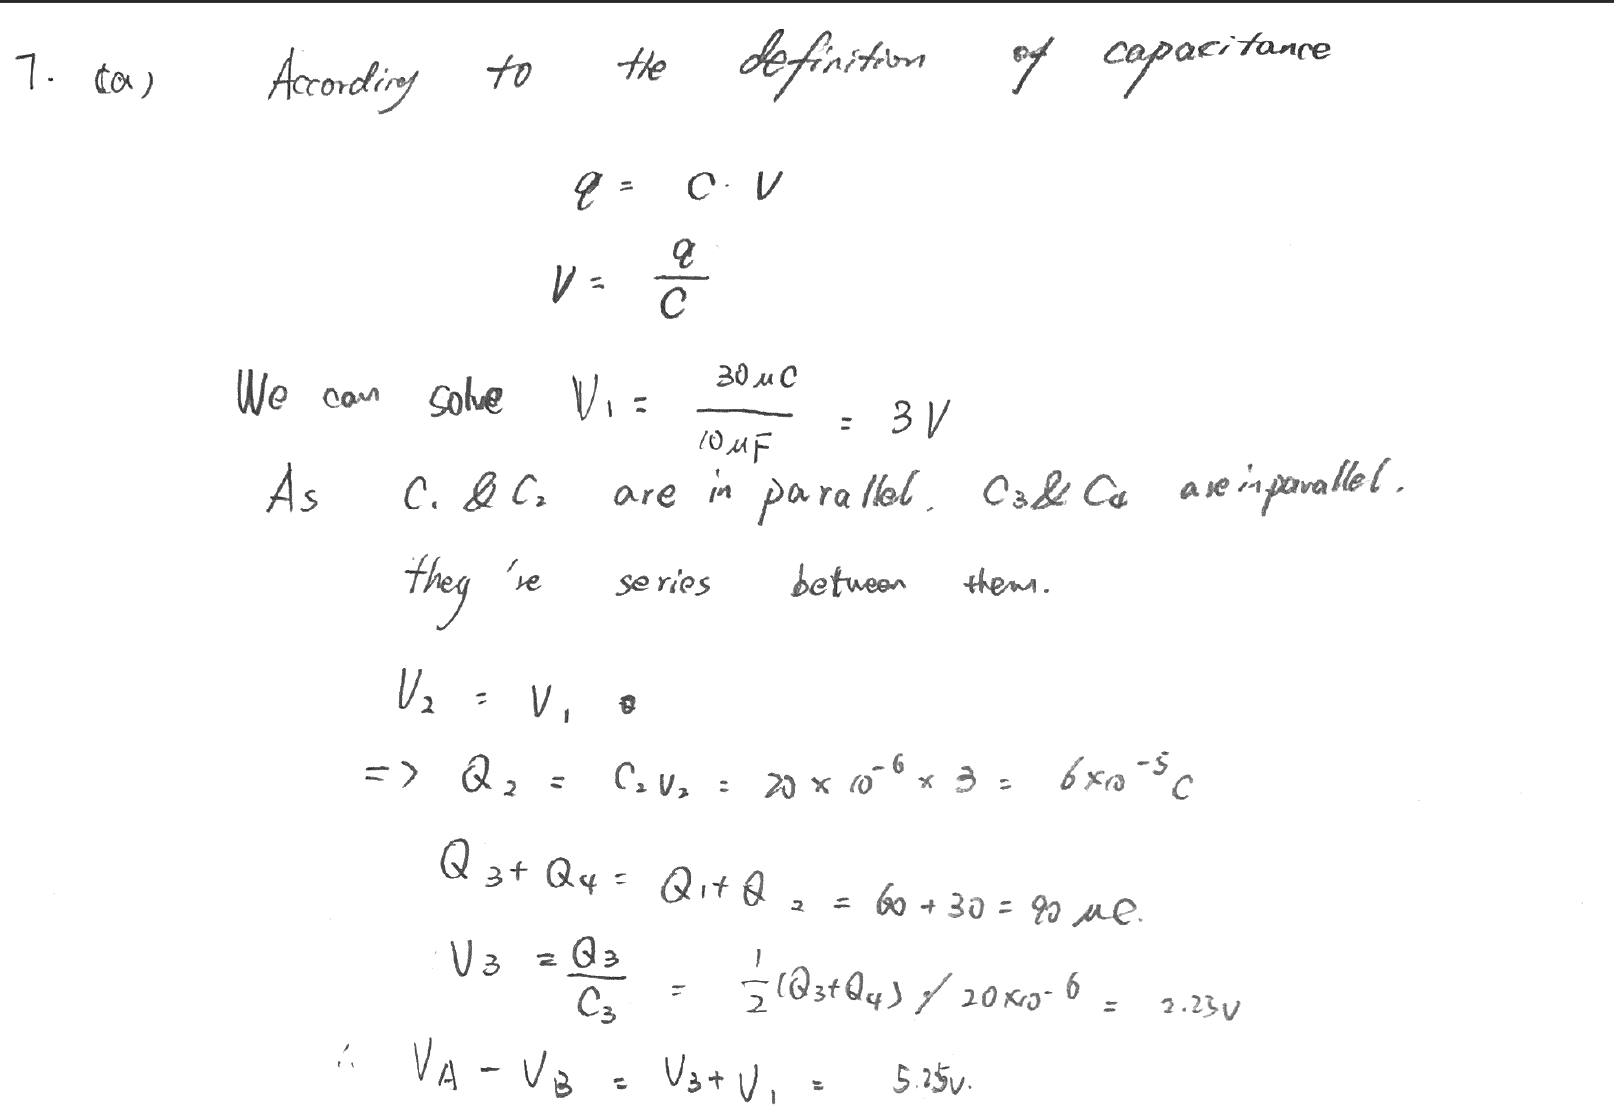 7. (a) According to the definition of capacitance
q = C · V
V = q / C
We can solve V₁ = 30 μC / 10 μF = 3 V
As C₁ & C₂ are in parallel, C₃ & C₄ are in parallel.
they're series between them.
V₂ = V₁
=> Q₂ = C₂V₂ = 20 × 10⁻⁶ × 3 = 6×10⁻⁵ C
Q₃ + Q₄ = Q₁ + Q₂ = 60 + 30 = 90 μC.
V₃ = Q₃ / C₃ = 1/2 (Q₃+Q₄) / 20×10⁻⁶ = 2.23V
∴ V_A - V_B = V₃ + V₁ = 5.25V.